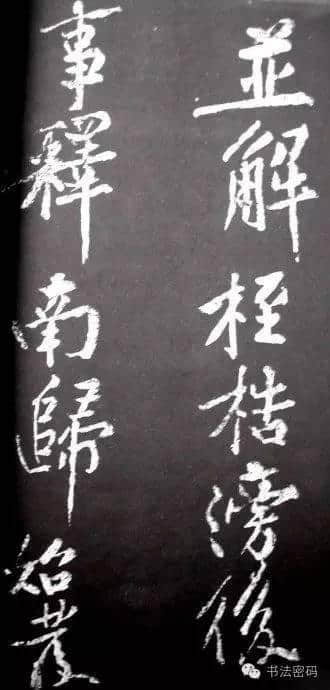 並解桎梏滂後
事釋南歸始發
书法密码